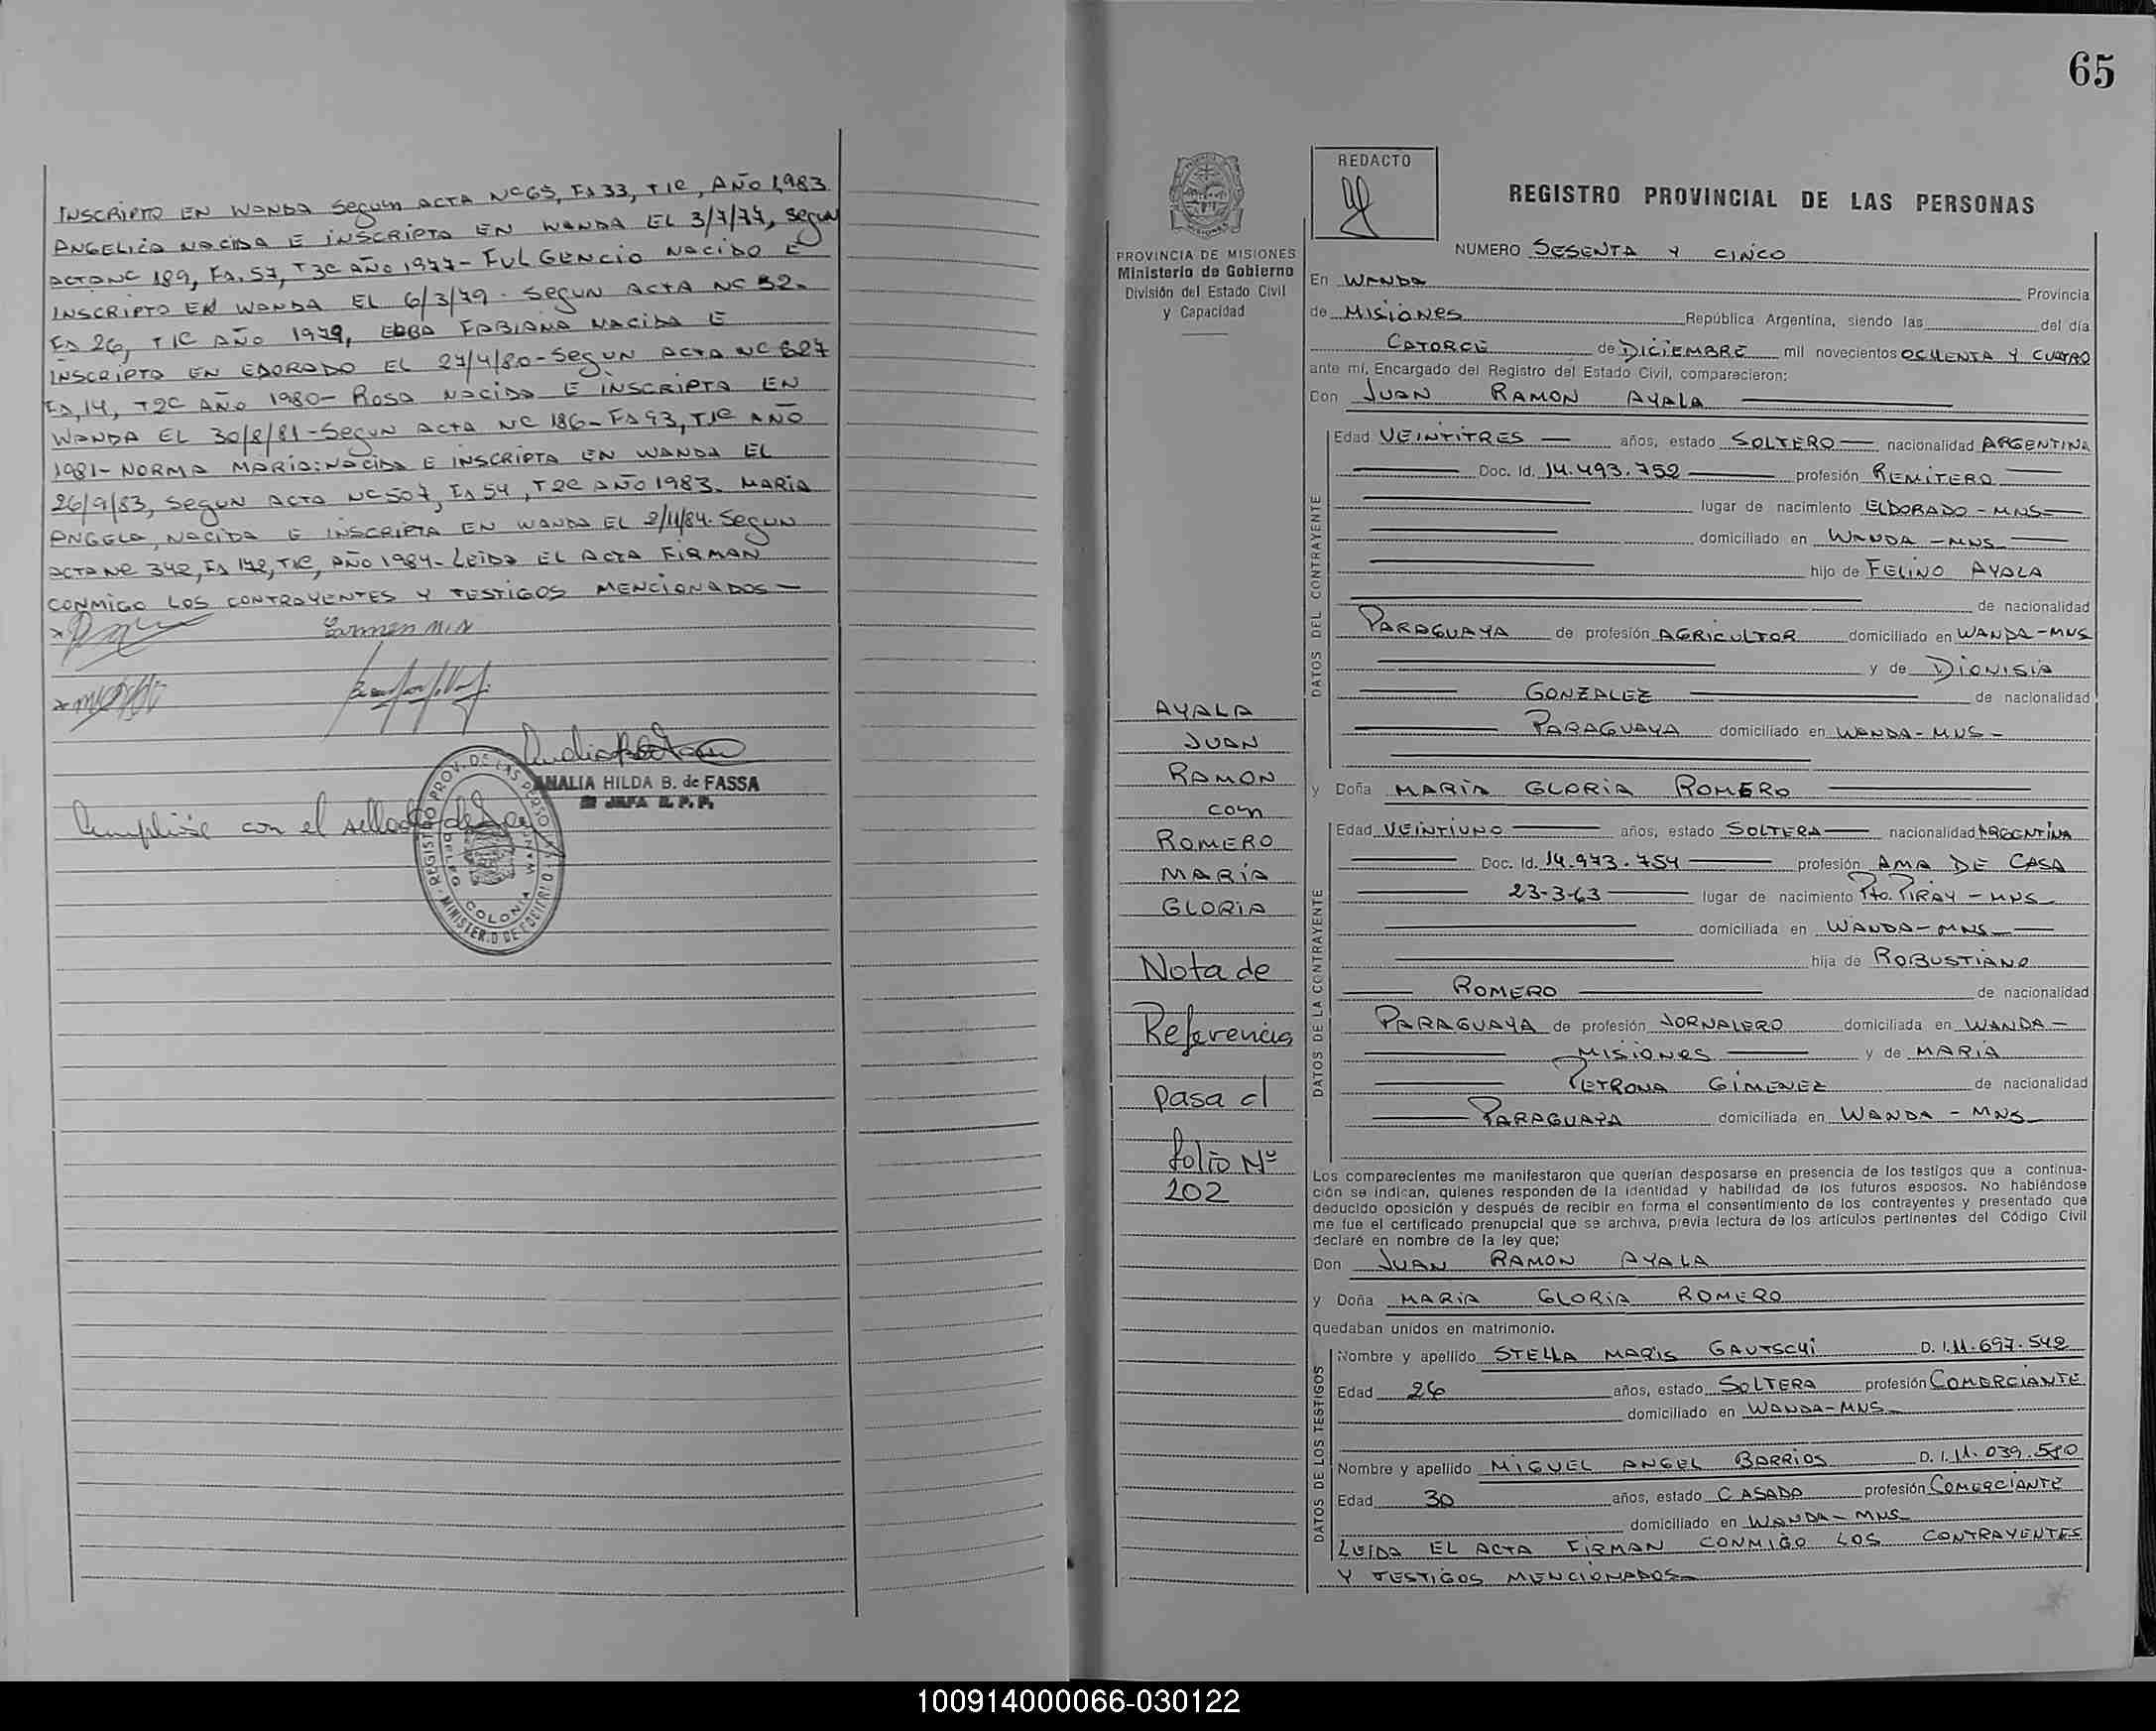 INSCRIPTO EN WANDA Segun ACTA Nº 65, Fs 33, T 1º, AÑO 1,983
ANGELICA NACIDA E INSCRIPTA EN WANDA EL 3/7/77, Segun
ACTA Nº 189, Fs. 57, T3º AÑO 1977- FULGENCIO NACIDO E
INSCRIPTO EN WANDA EL 6/3/79 - Segun ACTA Nº 52-
Fs 26, T1º AÑO 1979, ELBA FABIANA NACIDA E
INSCRIPTA EN ELDORADO EL 27/4/80- Segun ACTA Nº 827
Fs, 14, T2º AÑO 1980- ROSA NACIDA E INSCRIPTA EN
WANDA EL 30/8/81 - Segun ACTA Nº 186- Fs 93, T1º AÑO
1981- NORMA MARIA: NACIDA E INSCRIPTA EN WANDA EL
26/9/83, Segun ACTA Nº 507, Fs 54, T2º AÑO 1983. MARIA
ANGELA, NACIDA E INSCRIPTA EN WANDA EL 2/11/84. Segun
ACTA Nº 342, Fs 172, T1º, AÑO 1984- LEIDA EL ACTA FIRMAN
CONMIGO LOS CONTRAYENTES Y TESTIGOS MENCIONADOS-
ANALIA HILDA B. de FASSA
Cumplióse con el sellado de Ley
REGISTRO PROV. DE LAS PERSONAS
MINISTERIO DE GOBIERNO
COLONIA WANDA
65
PROVINCIA DE MISIONES
Ministerio de Gobierno
División del Estado Civil
y Capacidad
AYALA
JUAN
RAMON
con
ROMERO
MARIA
GLORIA
Nota de
Referencia
pasa al
folio Nº
202
REDACTO
REGISTRO PROVINCIAL DE LAS PERSONAS
NUMERO SESENTA Y CINCO
En WANDA Provincia
de MISIONES República Argentina, siendo las del día
CATORCE de DICIEMBRE mil novecientos OCHENTA Y CUATRO
ante mí, Encargado del Registro del Estado Civil, comparecieron:
Don JUAN RAMON AYALA
DATOS DEL CONTRAYENTE
Edad VEINTITRES años, estado SOLTERO nacionalidad ARGENTINA
Doc. Id. 14.493.752 profesión REMITERO
lugar de nacimiento ELDORADO - MNS
domiciliado en WANDA - MNS
hijo de FELINO AYALA
de nacionalidad
PARAGUAYA de profesión AGRICULTOR domiciliado en WANDA-MNS
y de DIONISIA
GONZALEZ de nacionalidad
PARAGUAYA domiciliado en WANDA-MNS-
y Doña MARIA GLORIA ROMERO
DATOS DE LA CONTRAYENTE
Edad VEINTIUNO años, estado SOLTERA nacionalidad ARGENTINA
Doc. Id. 14.973.754 profesión AMA DE CASA
23-3-63 lugar de nacimiento Pto. PIRAY - MNS
domiciliada en WANDA - MNS
hija de ROBUSTIANO
ROMERO de nacionalidad
PARAGUAYA de profesión JORNALERO domiciliada en WANDA-
MISIONES y de MARIA
PETRONA GIMENEZ de nacionalidad
PARAGUAYA domiciliada en WANDA - MNS
Los comparecientes me manifestaron que querían desposarse en presencia de los testigos que a continua-
ción se indican, quienes responden de la identidad y habilidad de los futuros esposos. No habiéndose
deducido oposición y después de recibir en forma el consentimiento de los contrayentes y presentado que
me fue el certificado prenupcial que se archiva, previa lectura de los artículos pertinentes del Código Civil
declaré en nombre de la ley que;
Don JUAN RAMON AYALA
y Doña MARIA GLORIA ROMERO
quedaban unidos en matrimonio.
DATOS DE LOS TESTIGOS
Nombre y apellido STELLA MARIS GAUTSCHI D. I. 11.697.542
Edad 26 años, estado SOLTERA profesión COMERCIANTE
domiciliado en WANDA-MNS
Nombre y apellido MIGUEL ANGEL BARRIOS D. I. 11.039.580
Edad 30 años, estado CASADO profesión COMERCIANTE
domiciliado en WANDA - MNS
LEIDA EL ACTA FIRMAN CONMIGO LOS CONTRAYENTES
Y TESTIGOS MENCIONADOS-
100914000066-030122